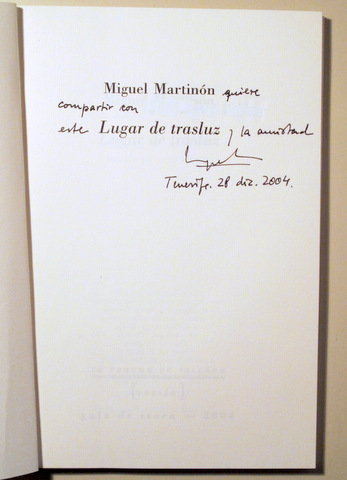 Miguel Martinón quiere
compartir con
este Lugar de trasluz y la amistad
Tenerife. 28 dic. 2004.